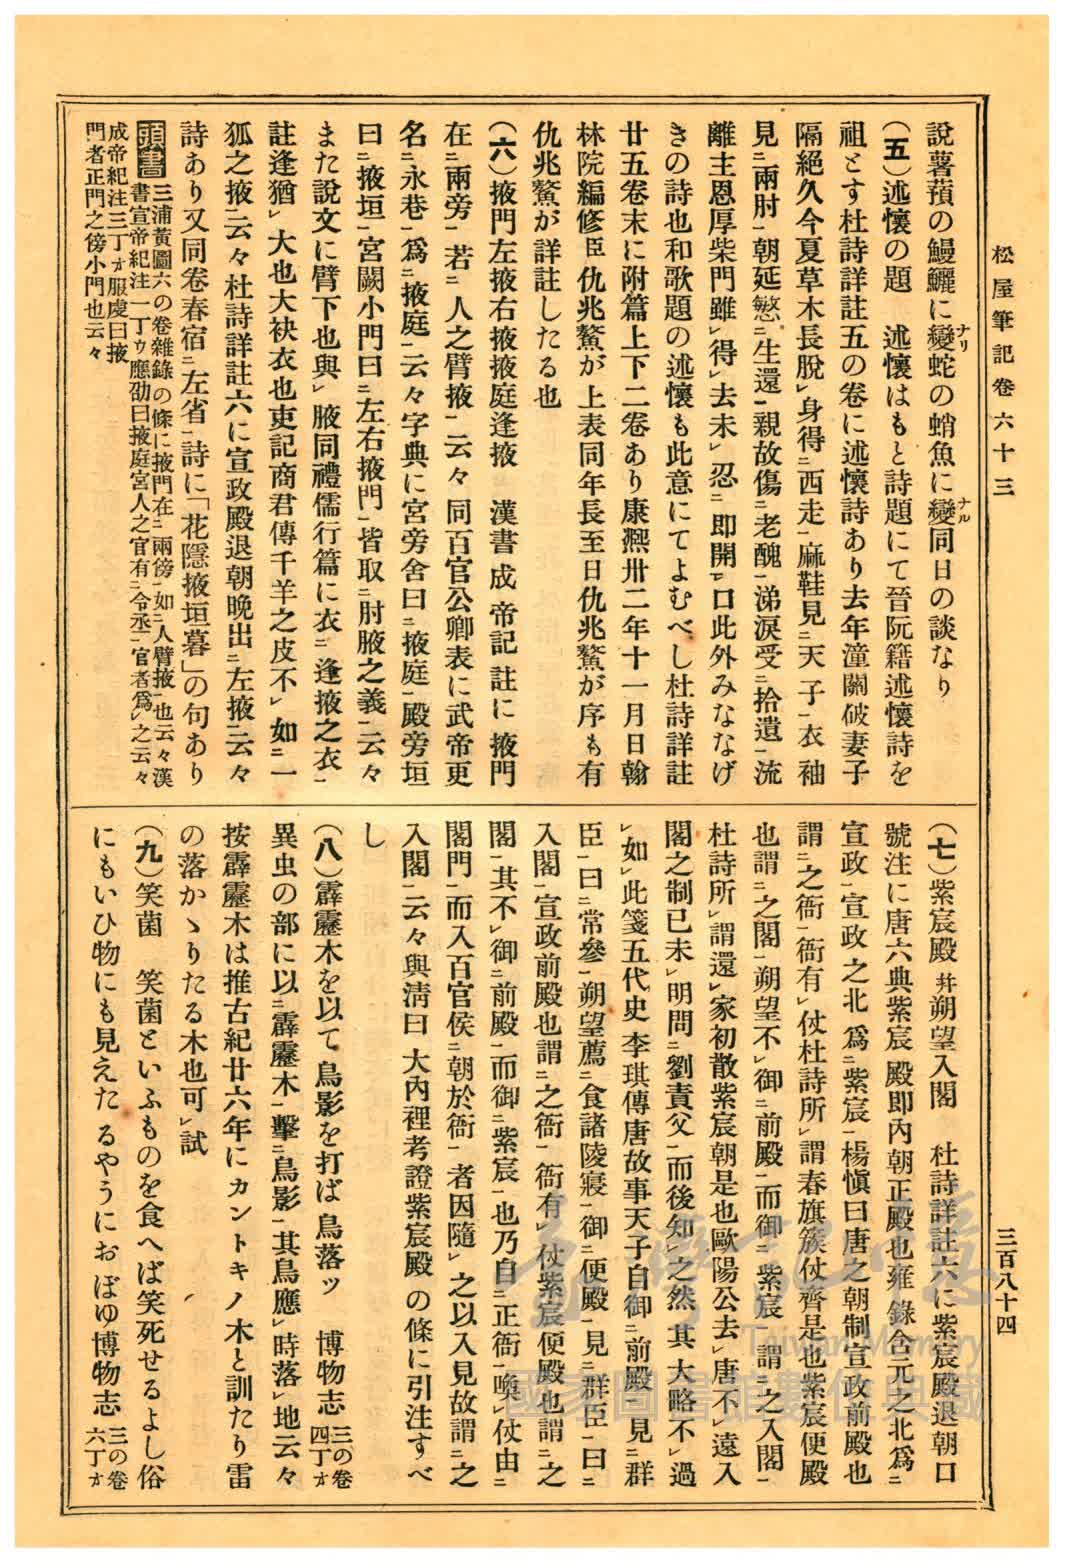 松屋筆記卷六十三
三百八十四
說薯蕷の鰻鱺に變蛇の蛸魚に變同日の談なり
ナリ
ナル
（五）述懷の題　述懷はもと詩題にて晉阮籍述懷詩を
祖とす杜詩詳註五の卷に述懷詩あり去年潼關破妻子
隔絕久今夏草木長脫レ身得ニ西走一麻鞋見ニ天子一衣袖
見ニ兩肘一朝延慜ニ生還一親故傷ニ老醜一涕淚受ニ拾遺一流
離主恩厚柴門雖レ得レ去未レ忍ニ卽開一レ口此外みななげ
きの詩也和歌題の述懷も此意にてよむべし杜詩詳註
廿五卷末に附篇上下二卷あり康熙卅二年十一月日翰
林院編修臣仇兆鰲が上表同年長至日仇兆鰲が序も有
仇兆鰲が詳註したる也
（六）掖門左掖右掖掖庭逢掖　漢書成帝記註に掖門
在ニ兩旁一若ニ人之臂掖一云々同百官公卿表に武帝更
名ニ永巷一爲ニ掖庭一云々字典に宮旁舍曰ニ掖庭一殿旁垣
曰ニ掖垣一宮闕小門曰ニ左右掖門一皆取ニ肘腋之義一云々
また說文に臂下也與レ腋同禮儒行篇に衣ニ逢掖之衣一
註逢猶レ大也大袂衣也吏記商君傳千羊之皮不レ如ニ一
狐之掖一云々杜詩詳註六に宣政殿退朝晚出ニ左掖一云々
詩あり又同卷春宿ニ左省一詩に「花隱掖垣暮」の句あり
頭書　三浦黃圖六の卷雜錄の條に掖門在ニ兩傍一如ニ人臂掖一也云々漢
書宣帝紀注一丁ウ應劭曰掖庭宮人之官有ニ令丞一官者爲レ之云々
成帝紀注三丁オ服虔曰掖
門者正門之傍小門也云々
（七）紫宸殿幷朔望入閣　杜詩詳註六に紫宸殿退朝口
號注に唐六典紫宸殿卽內朝正殿也雍錄含元之北爲ニ
宣政一宣政之北爲ニ紫宸一楊愼曰唐之朝制宣政前殿也
謂ニ之衙一衙有レ仗杜詩所レ謂春旗簇仗齊是也紫宸便殿
也謂ニ之閣一朔望不レ御ニ前殿一而御ニ紫宸一謂ニ之入閣一
杜詩所レ謂還レ家初散紫宸朝是也歐陽公去レ唐不レ遠入
閣之制已未レ明問ニ劉貢父一而後知レ之然其大略不レ過
レ如レ此箋五代史李琪傳唐故事天子自御ニ前殿一見ニ群
臣一曰ニ常參一朔望薦ニ食諸陵寢一御ニ便殿一見ニ群臣一曰ニ
入閣一宣政前殿也謂ニ之衙一衙有レ仗紫宸便殿也謂ニ之
閣一其不レ御ニ前殿一而御ニ紫宸一也乃自ニ正衙一喚レ仗由ニ
閣門一而入百官俟ニ朝於衙一者因隨レ之以入見故謂ニ之
入閣一云々與淸曰大內裡考證紫宸殿の條に引注すべ
し
（八）霹靂木を以て鳥影を打ば鳥落ッ　博物志三の卷四丁オ
異虫の部に以ニ霹靂木一擊ニ鳥影一其鳥應レ時落レ地云々
按霹靂木は推古紀廿六年にカントキノ木と訓たり雷
の落かゝりたる木也可レ試
（九）笑菌　笑菌といふものを食へば笑死せるよし俗
にもいひ物にも見えたるやうにおぼゆ博物志三の卷六丁オ
臺灣記憶
Taiwan Memory
國家圖書館數位典藏